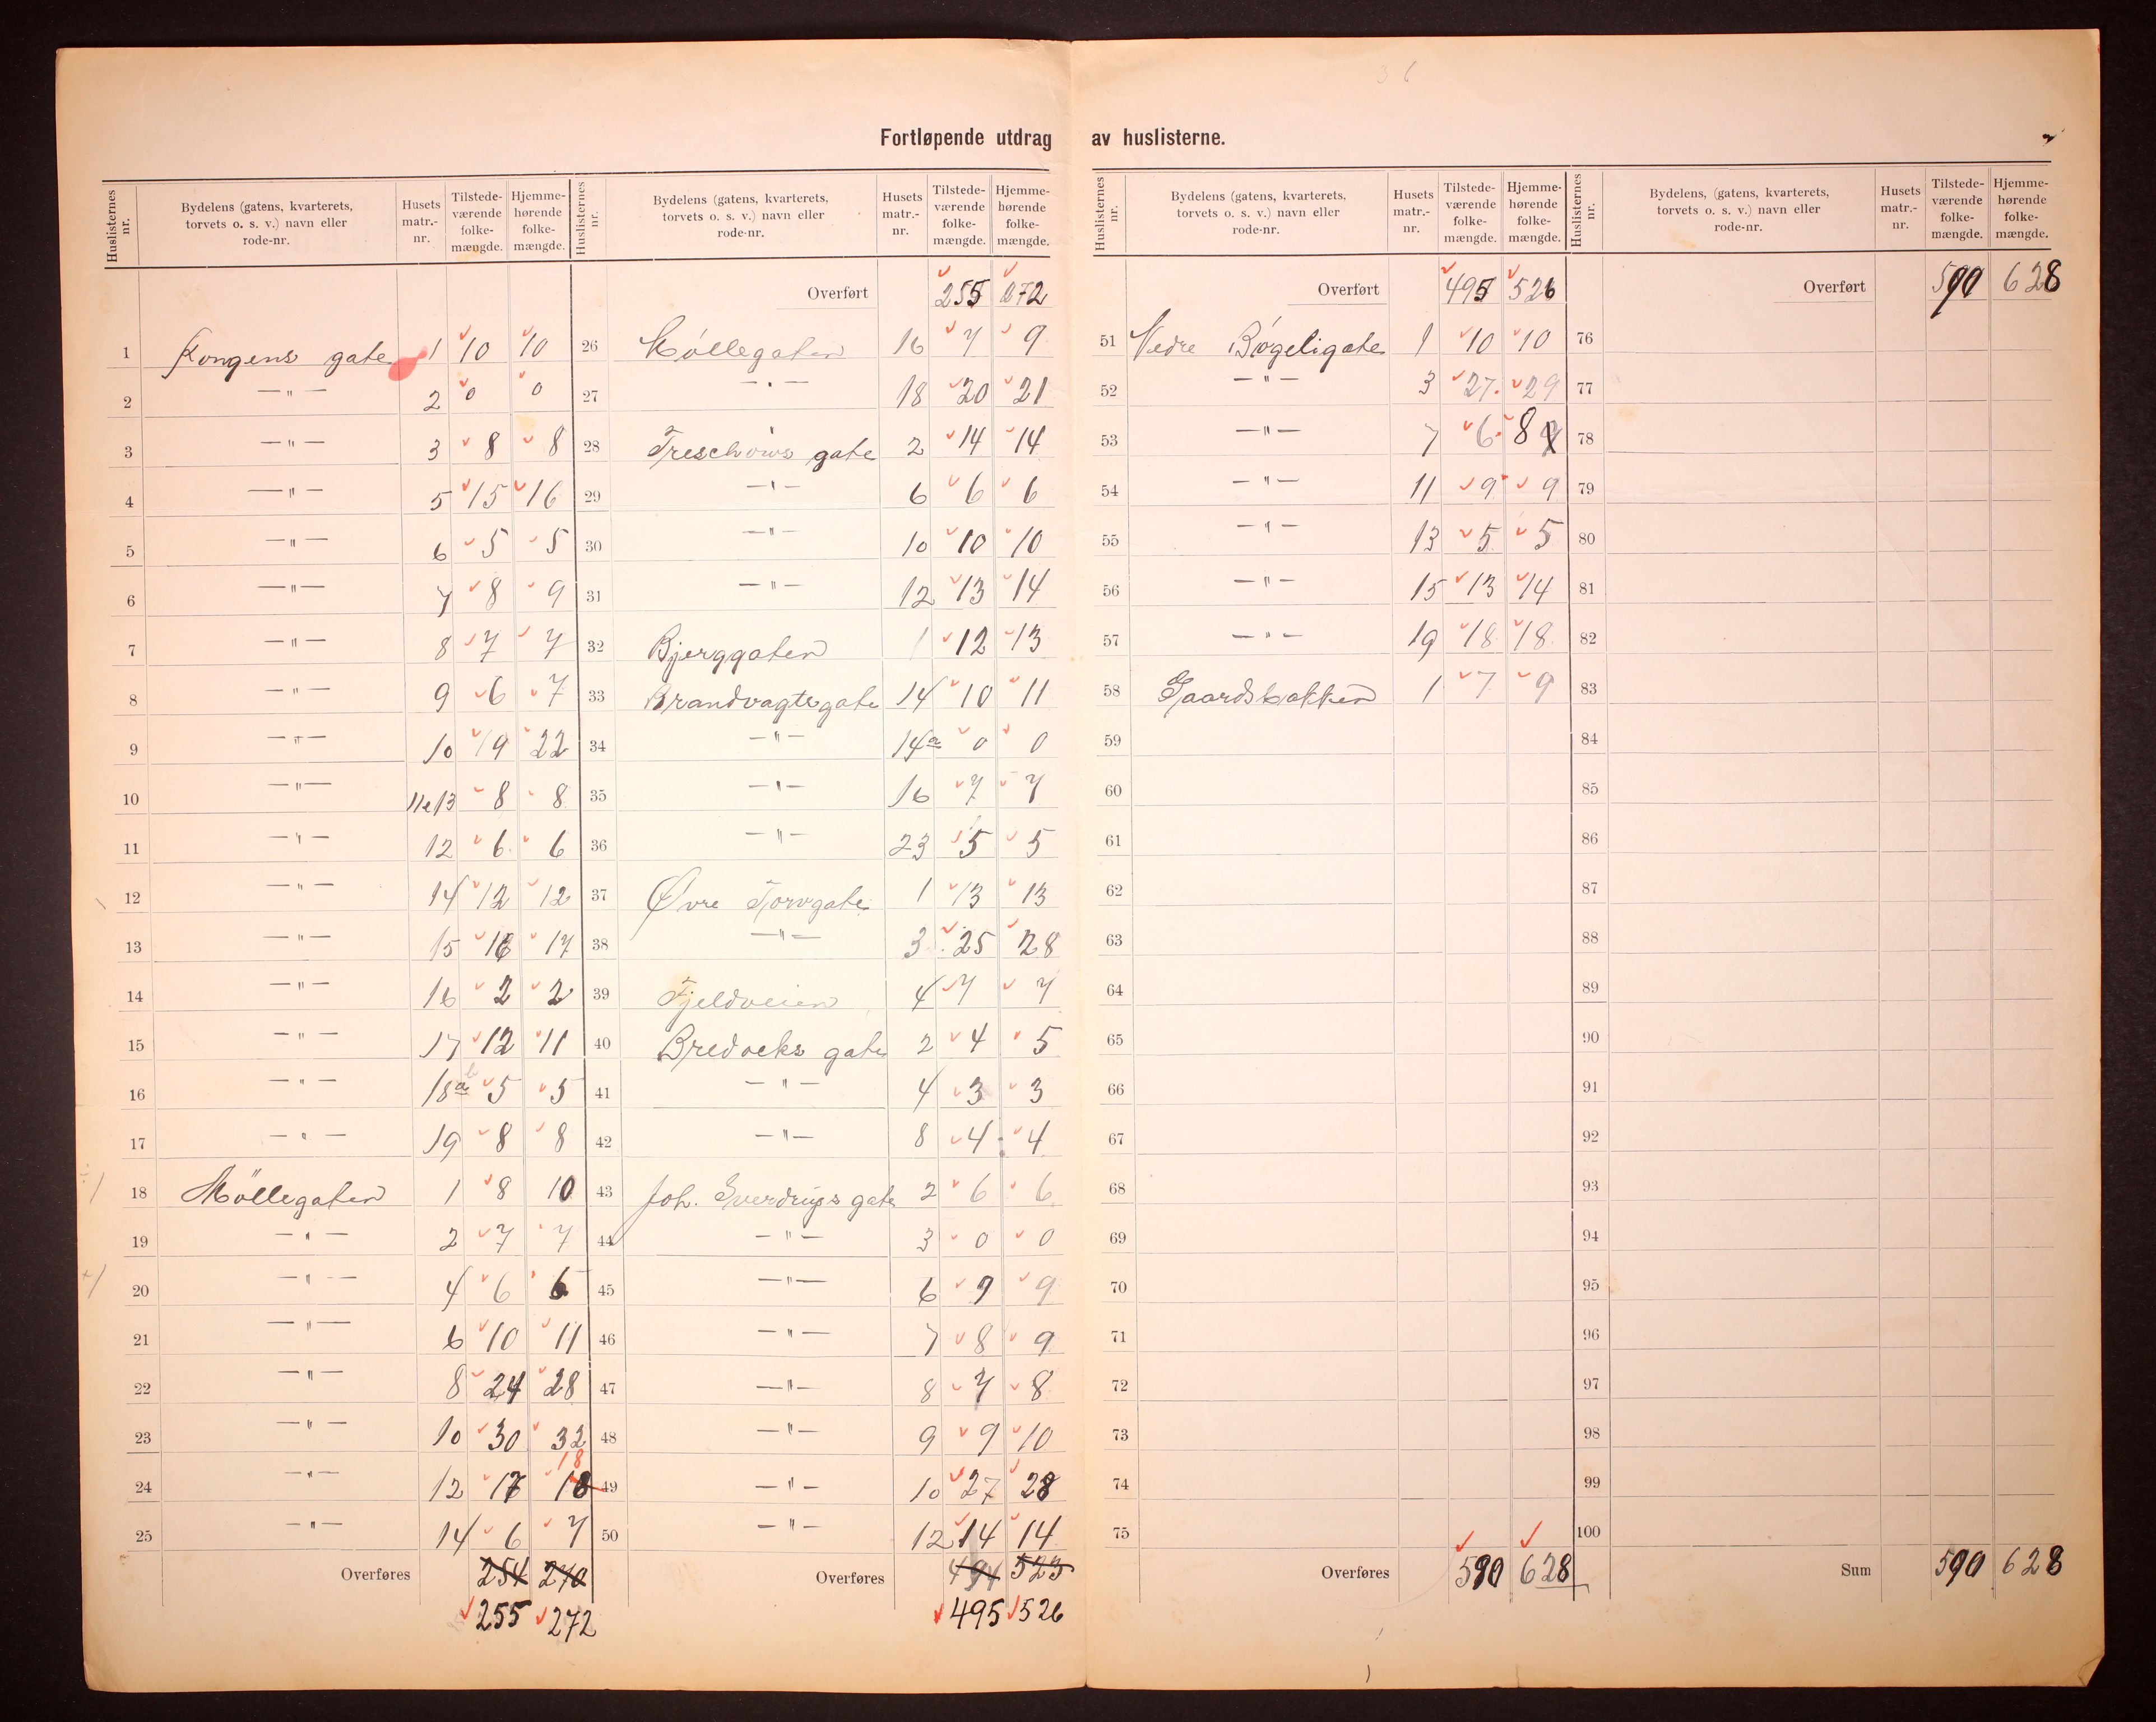 36
Fortløpende utdrag av huslisternes.
Huslisternes nr. Bydelens (gatens, kvarterets, torvets o. s. v.) navn eller rode-nr. Husets matr.-nr. Tilstede-værende folke-mængde. Hjemme-hørende folke-mængde.
1 Kongens gate 1 10 10
2 —"— 2 0 0
3 —"— 3 8 8
4 —"— 5 15 16
5 —"— 6 5 5
6 —"— 7 8 9
7 —"— 8 7 7
8 —"— 9 6 7
9 —"— 10 19 22
10 —"— 11e13 8 8
11 —"— 12 6 6
12 —"— 14 12 12
13 —"— 15 16 17
14 —"— 16 2 2
15 —"— 17 12 11
16 —"— 18a 5 5
17 —"— 19 8 8
18 Möllegaten 1 8 10
19 —"— 2 7 7
20 —"— 4 6 6
21 —"— 6 10 11
22 —"— 8 24 28
23 —"— 10 30 32
18
24 —"— 12 17 18
25 —"— 14 6 7
Overføres 254 270
255 272
Huslisternes nr. Bydelens (gatens, kvarterets, torvets o. s. v.) navn eller rode-nr. Husets matr.-nr. Tilstede-værende folke-mængde. Hjemme-hørende folke-mængde.
Overført 255 272
26 Möllegaten 16 7 9
27 —"— 18 20 21
28 Treschows gate 2 14 14
29 —"— 6 6 6
30 —"— 10 10 10
31 —"— 12 13 14
32 Bjerggaten 1 12 13
33 Brandvagtsgate 14 10 11
34 —"— 14a 0 0
35 —"— 16 7 7
36 —"— 23 5 5
37 Øvre Torvgate 1 13 13
38 —"— 3 25 28
39 Fjeldveien 4 7 7
40 Bredocks gate 2 4 5
41 —"— 4 3 3
42 —"— 8 4 4
43 Joh. Sverdrups gate 2 6 6
44 —"— 3 0 0
45 —"— 6 9 9
46 —"— 7 8 9
47 —"— 8 7 8
48 —"— 9 9 10
49 —"— 10 27 28
50 —"— 12 14 14
Overføres 494 523
495 526
Huslisternes nr. Bydelens (gatens, kvarterets, torvets o. s. v.) navn eller rode-nr. Husets matr.-nr. Tilstede-værende folke-mængde. Hjemme-hørende folke-mængde.
Overført 495 526
51 Nedre Bøgeligate 1 10 10
52 —"— 3 27 29
53 —"— 7 6 8
54 —"— 11 9 9
55 —"— 13 5 5
56 —"— 15 13 14
57 —"— 19 18 18
58 Gaardsbakken 1 7 9
59
60
61
62
63
64
65
66
67
68
69
70
71
72
73
74
75
Overføres 590 628
Huslisternes nr. Bydelens, (gatens, kvarterets, torvets o. s. v.) navn eller rode-nr. Husets matr.-nr. Tilstede-værende folke-mængde. Hjemme-hørende folke-mængde.
Overført 590 628
76
77
78
79
80
81
82
83
84
85
86
87
88
89
90
91
92
93
94
95
96
97
98
99
100
Sum 590 628